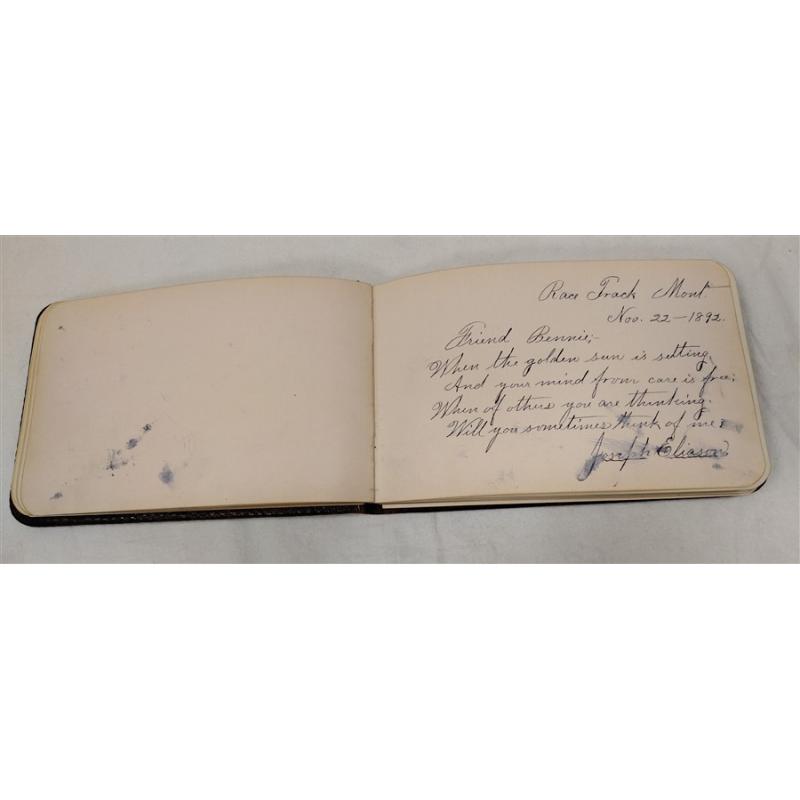 Race Track Mont.
Nov. 22-1892.
Friend Bennie;-
When the golden sun is setting,
And your mind from care is free;
When of others you are thinking.
Will you sometimes think of me?
Joseph Eliason